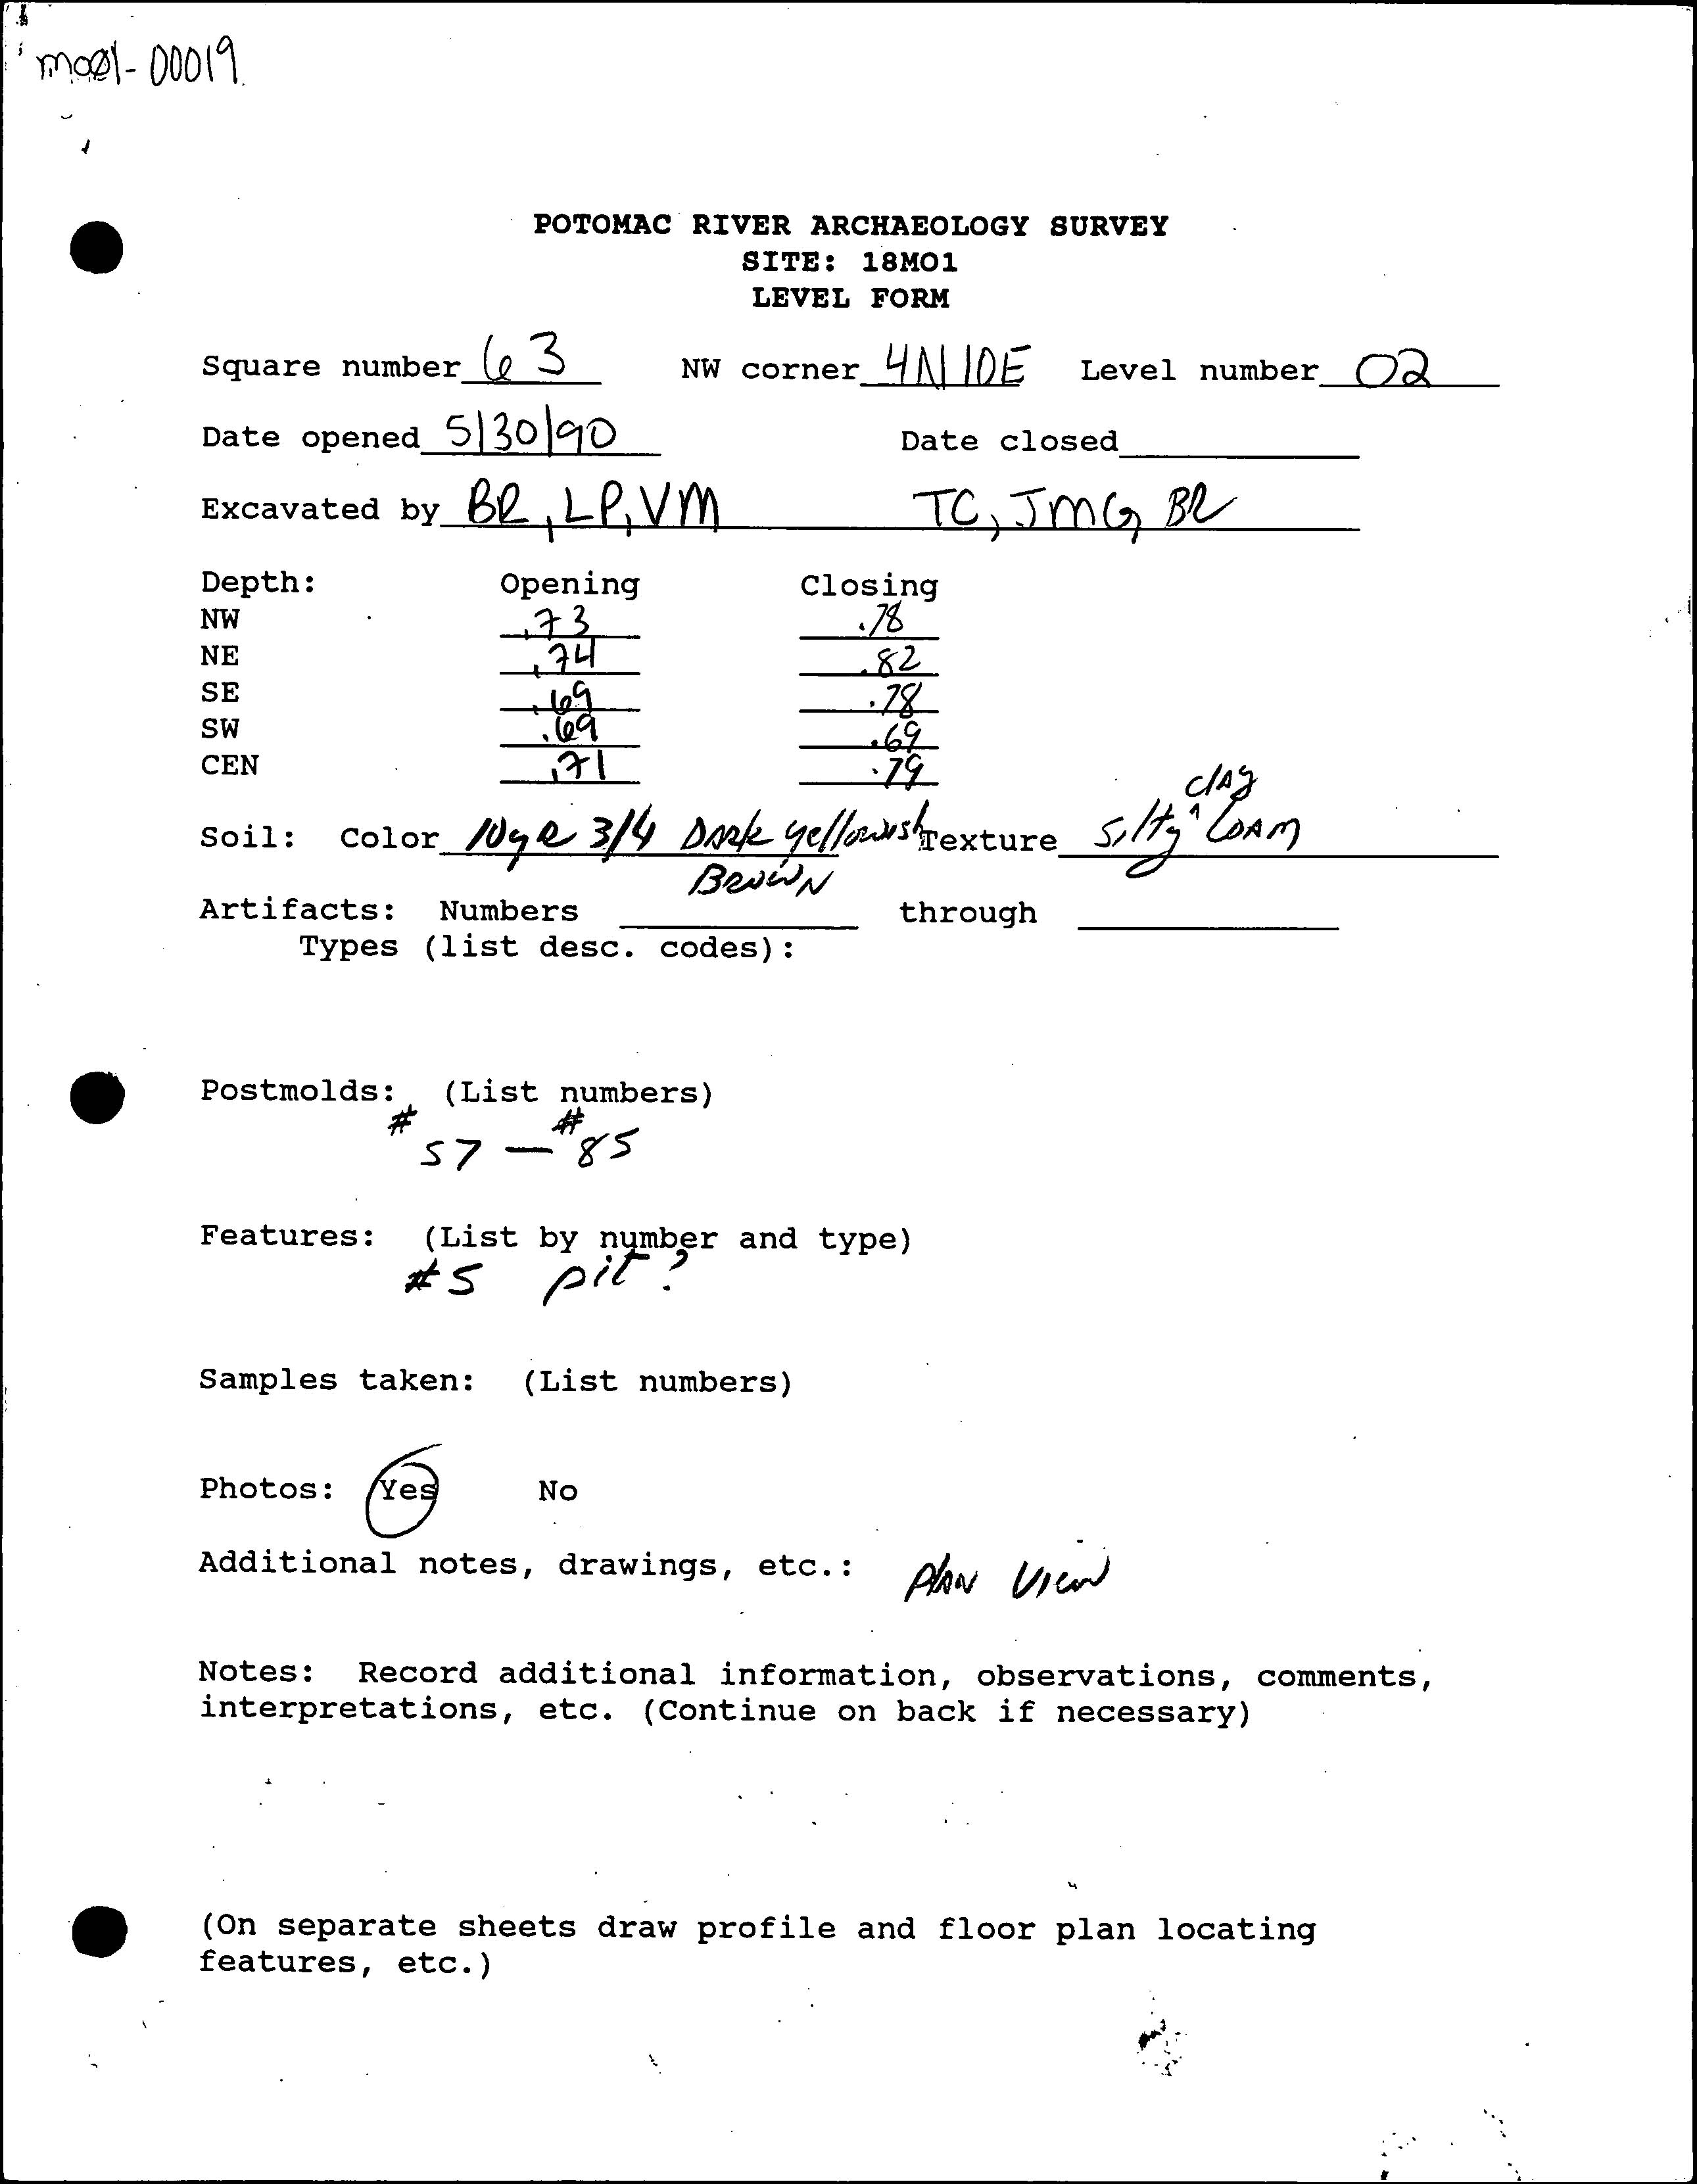 mo01-00019
POTOMAC RIVER ARCHAEOLOGY SURVEY
SITE: 18MO1
LEVEL FORM
Square number 63 NW corner 4N10E Level number 02
Date opened 5/30/90 Date closed
Excavated by BR, LP, VM TC, JMG, BR
Depth: Opening Closing
NW .73 .78
NE .74 .82
SE .69 .78
SW .69 .69
CEN .71 .79
Soil: Color 10yR 3/4 Dark yellowish Brown Texture Silty clay Loam
Artifacts: Numbers through
Types (list desc. codes):
Postmolds: (List numbers)
#57 — #85
Features: (List by number and type)
#5 pit?
Samples taken: (List numbers)
Photos: Yes No
Additional notes, drawings, etc.: Plan View
Notes: Record additional information, observations, comments,
interpretations, etc. (Continue on back if necessary)
(On separate sheets draw profile and floor plan locating
features, etc.)